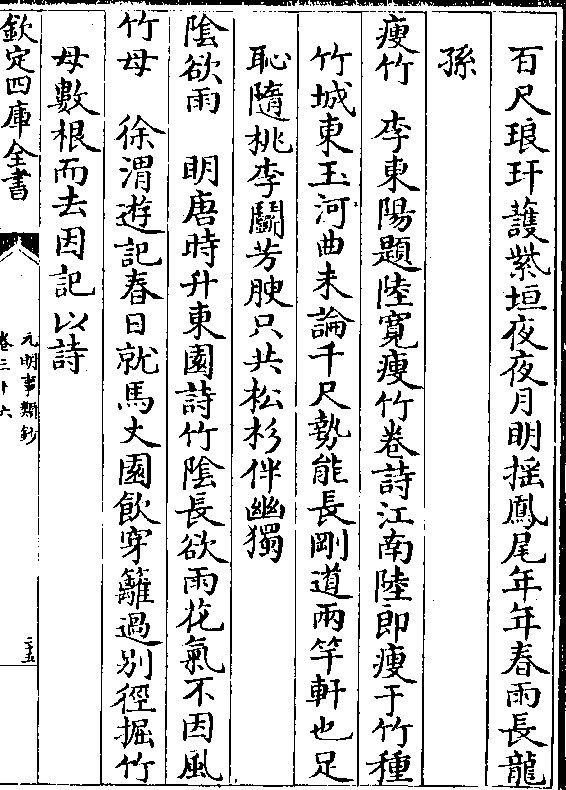 百尺琅玕䕶紫垣夜夜月明揺鳳尾年年春雨長龍
孫
瘦竹　李東陽題陸寛瘦竹卷詩江南陸郎瘦于竹種
竹城東玉河曲未論千尺勢能長剛道兩竿軒也足
恥隨桃李鬭芳腴只共松杉伴幽獨
隂欲雨　明唐時升東園詩竹隂長欲雨花氣不因風
竹母　徐渭遊記春日就馬丈園飲穿籬過别徑掘竹
母數根而去因記以詩
欽定四庫全書
元明事類鈔
卷三十六
二五